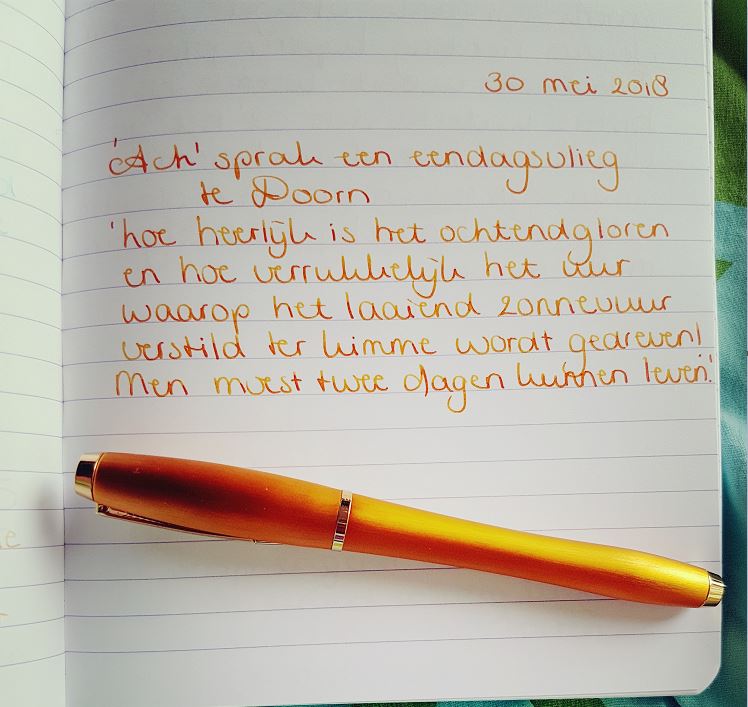 30 mei 2018
'Ach' sprak een eendagsvlieg
te Doorn
'hoe heerlijk is het ochtendgloren
en hoe verrukkelijk het uur
waarop het laaiend zonnevuur
verstild ter kimme wordt gedreven!
Men moest twee dagen kunnen leven.'